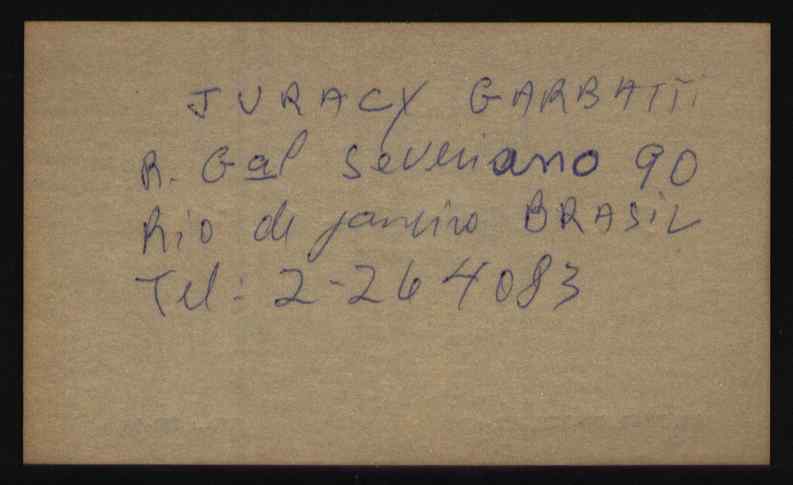 JURACY GARBATTi
R. Gal Severiano 90
Rio de janeiro BRASiL
Tel: 2-264083